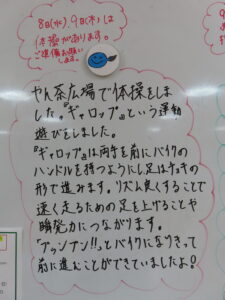 8日(水)、9日(木)は
体操があります。
ご準備お願い
します。
やん茶広場で体操をしま
した。『ギャロップ』という運動
遊びをしました。
『ギャロップ』は両手を前にバイクの
ハンドルを持つようにし足はチョキの
形で進みます。リズム良くすることで
速く走るための足を上げることや
瞬発力につながります。
「ブンブン!!」とバイクになりきって
前に進むことができていましたよ!